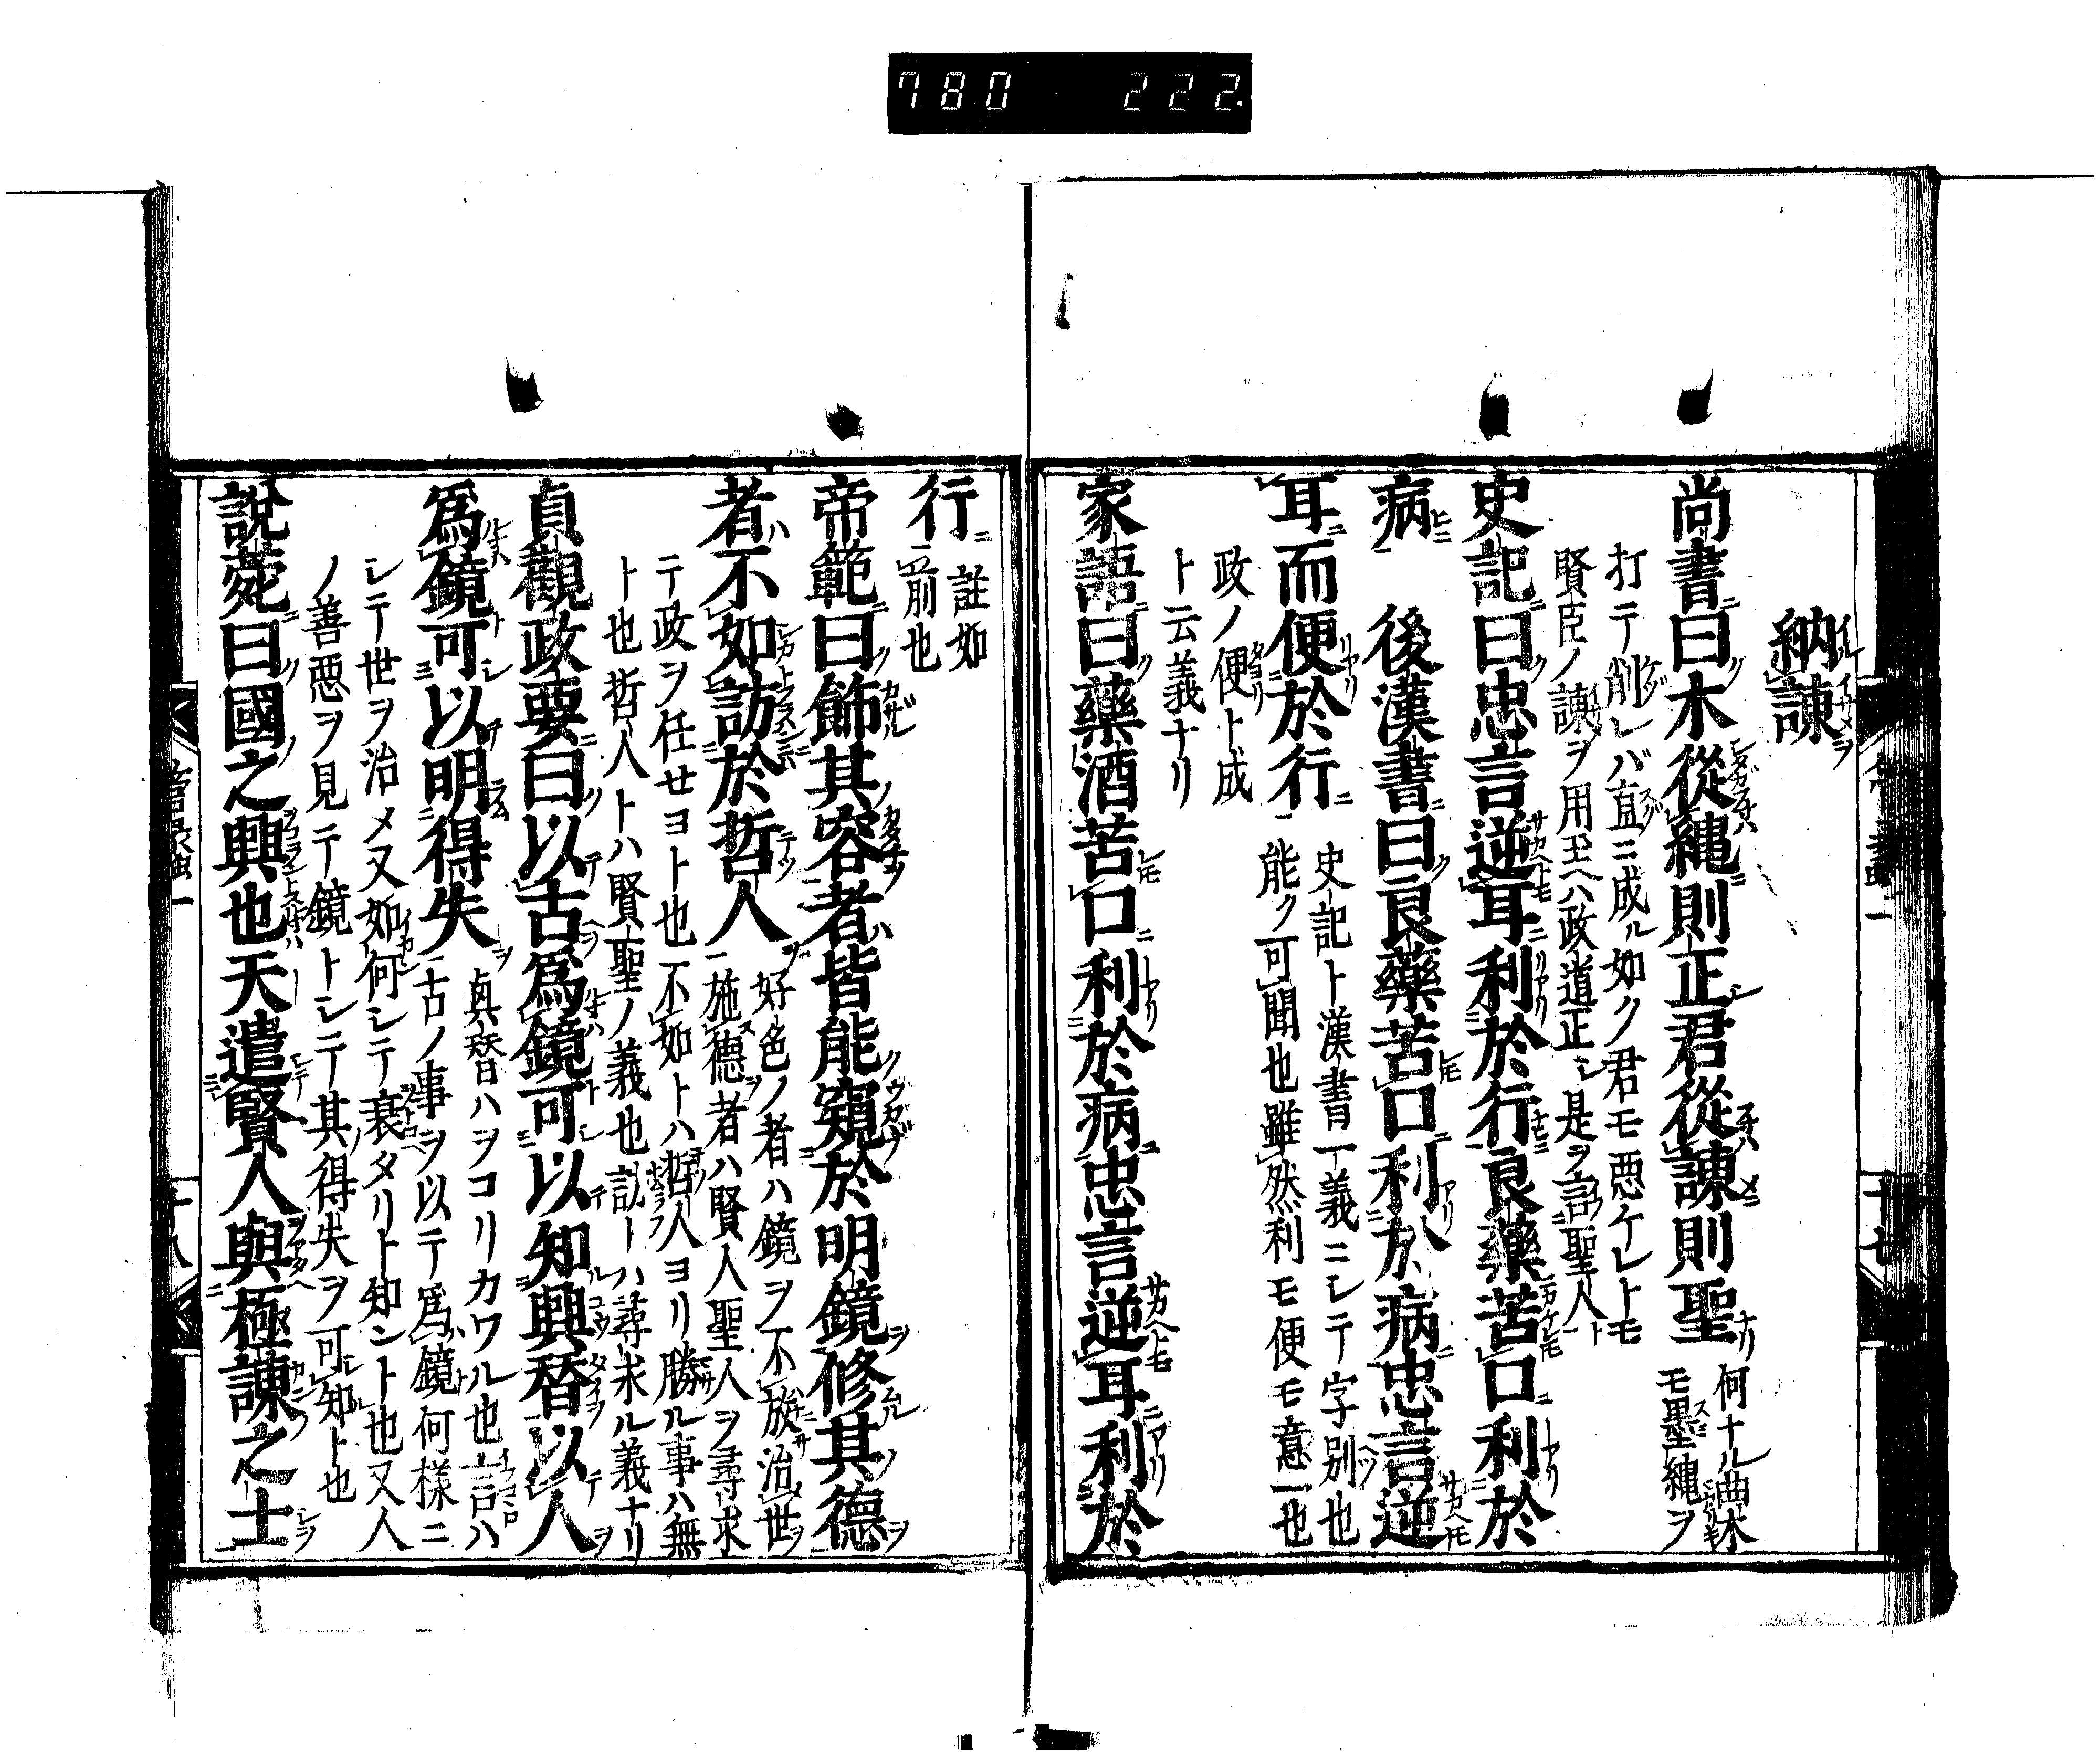 780 222
納諫
尚書曰木從繩則正君從諫則聖
何ナル曲木
モ墨繩ヲ
打テ削レバ直ニ成ル如ク君モ悪ケレトモ
賢臣ノ諫ヲ用玉ヘハ政道正シ是ヲ謂聖人ト
史記曰忠言逆耳利於行良藥苦口利於
病
後漢書曰良藥苦口利於病忠言逆
耳而便於行
史記ト漢書一義ニシテ字別也
能ク可聞也雖然利モ便モ意一也
政ノ便ト成
ト云義ナリ
家語曰藥酒苦口利於病忠言逆耳利於
行
註如
前也
帝範曰飾其容者皆能窺於明鏡修其德
者不如訪於哲人
好色ノ者ハ鏡ヲ不放治世ヲ
施德者ハ賢人聖人ヲ尋求
テ政ヲ任セヨト也不如トハ哲人ヨリ勝ル事ハ無
ト也哲人トハ賢聖ノ義也訪ーハ尋求ル義ナリ
貞觀政要曰以古爲鏡可以知興替以人
爲鏡可以明得失
興替ハヲコリカワル也言ハ
古ノ事ヲ以テ爲鏡何様ニ
シテ世ヲ治メ又如何シテ衰タリト知ント也又人
ノ善悪ヲ見テ鏡トシテ其得失ヲ可知ト也
說苑曰國之興也天遣賢人與極諫之士